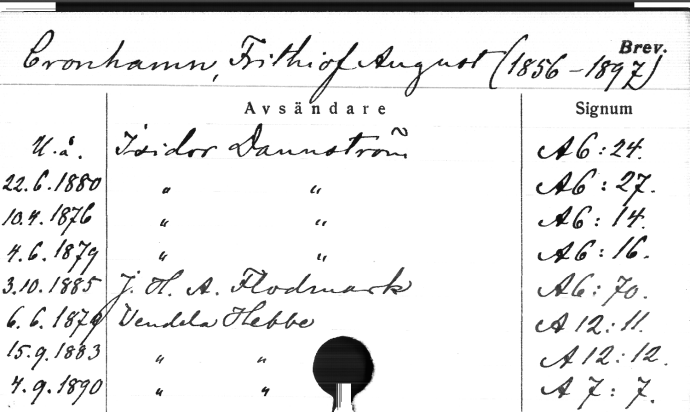 Brev.
Cronhamn, Frithiof August (1856-1897)
Avsändare Signum
U.å. Isidor Dannström A6:24.
22.6.1880 " " A6:27.
10.4.1876 " " A6:14.
4.6.1879 " " A6:16.
3.10.1885 J. H. A. Flodmark A6:70.
6.6.1879 Vendela Hebbe A12:11.
15.9.1883 " " A12:12.
4.9.1890 " " A7:7.